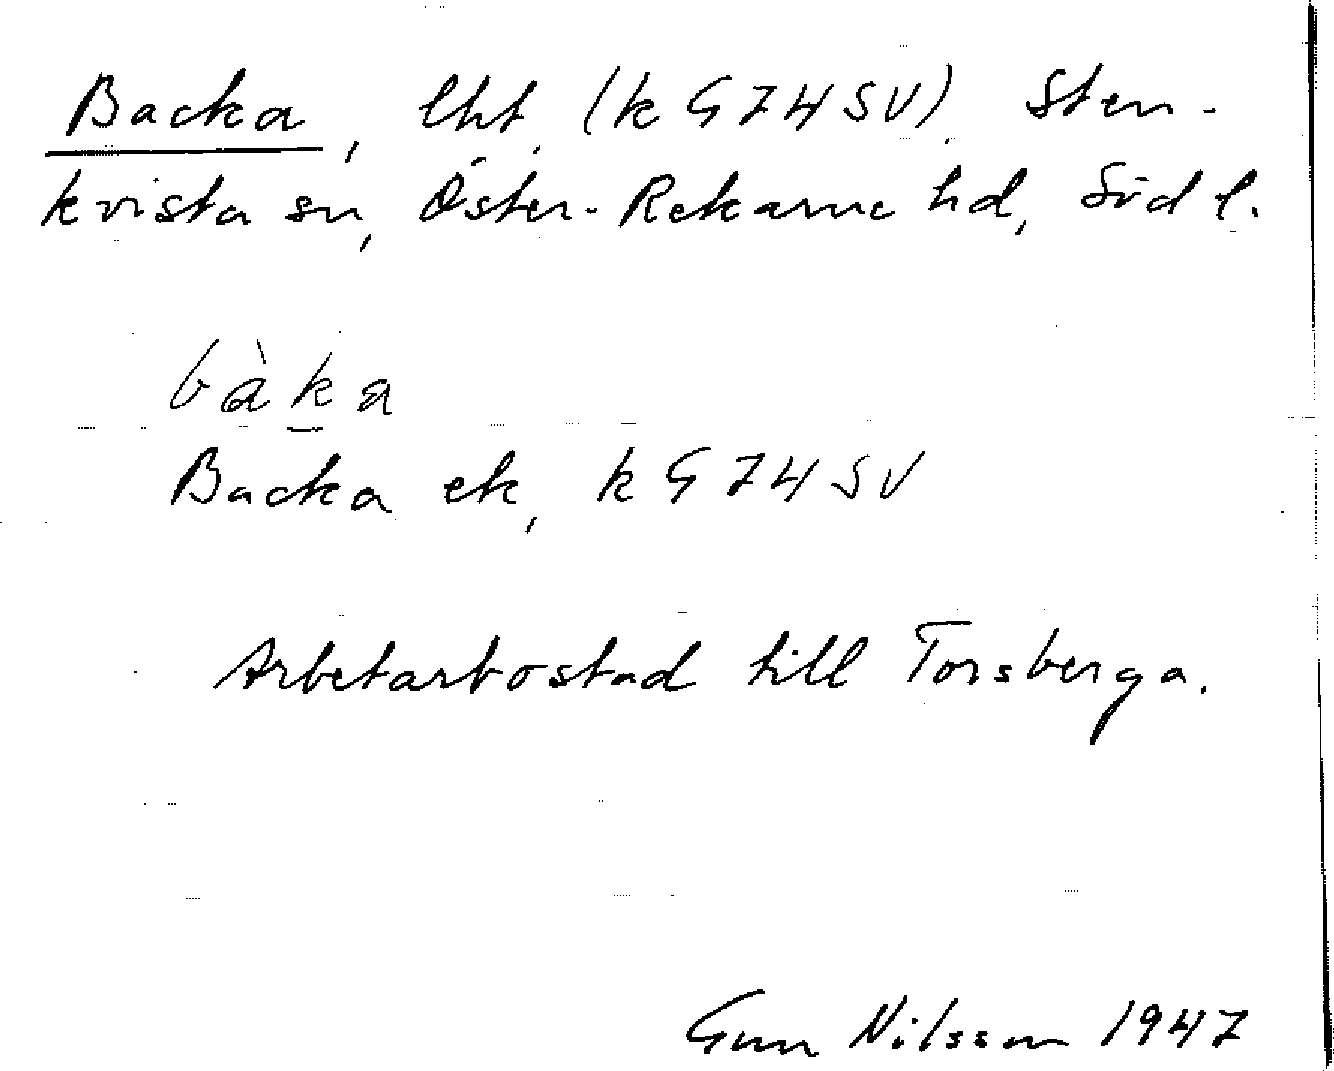 Backa, lht. (k G74SV). Sten-
kvista sn, Öster-Rekarne hd, Söd l.
bàka
Backa ek, k G74SV
Arbetarbostad till Torsberga.
Gun Nilsson 1947